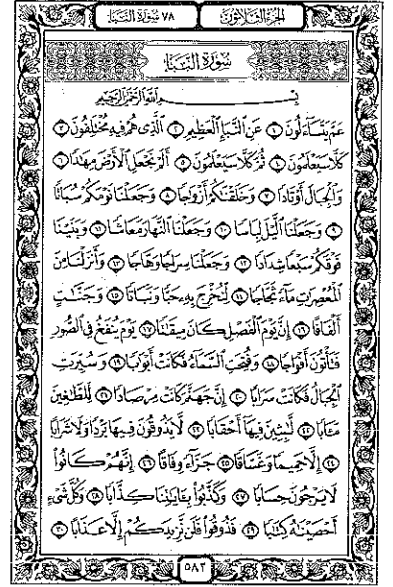 الجزء الثلاثون ٧٨ سورة النبإ
سورة النبإ
بسم الله الرحمن الرحيم
عَمَّ يَتَسَآءَلُونَ ١ عَنِ ٱلنَّبَإِ ٱلْعَظِيمِ ٢ ٱلَّذِى هُمْ فِيهِ مُخْتَلِفُونَ ٣
كَلَّا سَيَعْلَمُونَ ٤ ثُمَّ كَلَّا سَيَعْلَمُونَ ٥ أَلَمْ نَجْعَلِ ٱلْأَرْضَ مِهَٰدًا ٦
وَٱلْجِبَالَ أَوْتَادًا ٧ وَخَلَقْنَٰكُمْ أَزْوَٰجًا ٨ وَجَعَلْنَا نَوْمَكُمْ سُبَاتًا
٩ وَجَعَلْنَا ٱلَّيْلَ لِبَاسًا ١٠ وَجَعَلْنَا ٱلنَّهَارَ مَعَاشًا ١١ وَبَنَيْنَا
فَوْقَكُمْ سَبْعًا شِدَادًا ١٢ وَجَعَلْنَا سِرَاجًا وَهَّاجًا ١٣ وَأَنزَلْنَا مِنَ
ٱلْمُعْصِرَٰتِ مَآءً ثَجَّاجًا ١٤ لِّنُخْرِجَ بِهِۦ حَبًّا وَنَبَاتًا ١٥ وَجَنَّٰتٍ
أَلْفَافًا ١٦ إِنَّ يَوْمَ ٱلْفَصْلِ كَانَ مِيقَٰتًا ١٧ يَوْمَ يُنفَخُ فِى ٱلصُّورِ
فَتَأْتُونَ أَفْوَاجًا ١٨ وَفُتِحَتِ ٱلسَّمَآءُ فَكَانَتْ أَبْوَٰبًا ١٩ وَسُيِّرَتِ
ٱلْجِبَالُ فَكَانَتْ سَرَابًا ٢٠ إِنَّ جَهَنَّمَ كَانَتْ مِرْصَادًا ٢١ لِّلطَّٰغِينَ
مَـَٔابًا ٢٢ لَّٰبِثِينَ فِيهَآ أَحْقَابًا ٢٣ لَّا يَذُوقُونَ فِيهَا بَرْدًا وَلَا شَرَابًا
٢٤ إِلَّا حَمِيمًا وَغَسَّاقًا ٢٥ جَزَآءً وِفَاقًا ٢٦ إِنَّهُمْ كَانُوا۟
لَا يَرْجُونَ حِسَابًا ٢٧ وَكَذَّبُوا۟ بِـَٔايَٰتِنَا كِذَّابًا ٢٨ وَكُلَّ شَىْءٍ
أَحْصَيْنَٰهُ كِتَٰبًا ٢٩ فَذُوقُوا۟ فَلَن نَّزِيدَكُمْ إِلَّا عَذَابًا ٣٠
٥٨٢